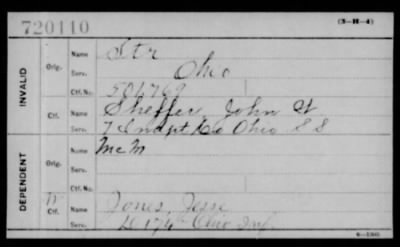 720110 (3-H-4)
INVALID
Orig. Name Str
Serv. Ohio
Ctf. No. 501769
Ctf. Name Sheffer, John W
Serv. 7 Indpt Co Ohio S S
DEPENDENT
Orig. Name McM
Serv.
Ctf. No.
W Ctf. Name Jones, Jesse
Serv. D 174" Ohio Inf.